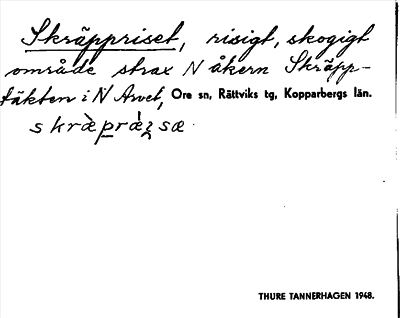 Skräppriset, risigt, skogigt
område strax N åkern Skräpp-
täkten i N Arvet, Ore sn, Rättviks tg, Kopparbergs län.
skræ̀præ̀ʒsæ
THURE TANNERHAGEN 1948.